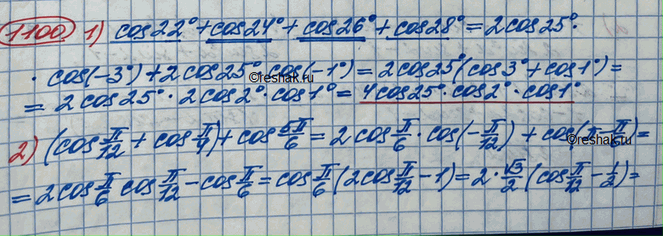 1100 1) cos22° + cos24° + cos26° + cos28° = 2cos25°·
· cos(-3°) + 2cos25° · cos(-1°) = 2cos25°(cos3° + cos1°) =
= 2cos25° · 2cos2° · cos1° = 4cos25° · cos2° · cos1°
2) (cos π/12 + cos π/4) + cos 5π/6 = 2cos π/6 · cos(-π/12) + cos(π - π/6) =
= 2cos π/6 cos π/12 - cos π/6 = cos π/6 (2cos π/12 - 1) = 2 · √3/2 (cos π/12 - 1/2) =
©reshak.ru
©reshak.ru